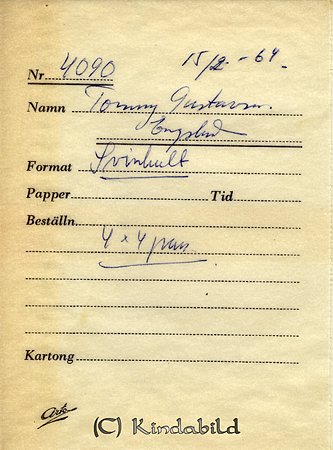 Nr 4090 15/2 - 64.
Namn Tommy Gustavsson.
Format Svinhult
Papper Tid
Beställn.
4 x 4
Kartong
(C) Kindabild